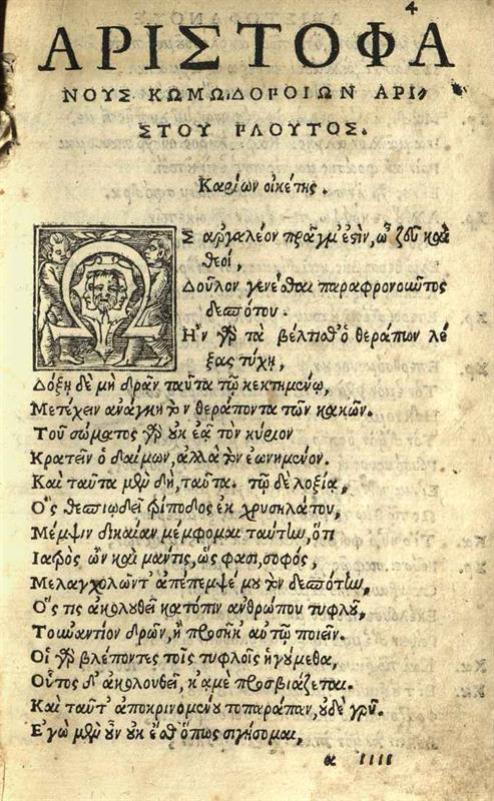 4
ΑΡΙΣΤΟΦΑ
ΝΟΥΣ ΚΩΜΩΔΟΡΟΙΩΝ ΑΡΙ-
ΣΤΟΥ ΡΛΟΥΤΟΣ.
Καρίων οἰκέτης.
Ὡ Σ ἀργαλέον πρᾶγμ' ἐστὶν, ὦ ζεῦ καὶ
θεοί,
Δοῦλον γενέσθαι παραφρονοῦντος
δεσπότου.
Ηʹν γὰρ τὰ βέλτισθ' ὁ θεράπων λέ
ξας τύχη,
Δόξη δὲ μὴ δρᾶν ταῦτα τῷ κεκτημένῳ,
Μετέχειν ἀνάγκη τὸν θεράποντα τῶν κακῶν.
Τοῦ σώματος γὰρ οὐκ ἐᾷ τὸν κύριον
Κρατεῖν ὁ δαίμων, ἀλλὰ τὸν ἐωνημένον.
Καὶ ταῦτα μὲν δὴ, ταῦτα. τῷ δὲ λοξίᾳ,
Οʹς θεσπιῳδεῖ τρίποδος ἐκ χρυσηλάτου,
Μέμψιν δικαίαν μέμφομαι ταύτην, ὅτι
Ιατρὸς ὢν καὶ μάντις, ὥς φασι, σοφός,
Μελαγχολῶντ' ἀπέπεμψέ μου τὸν δεσπότην,
Οʹς τις ἀκολουθεῖ κατόπιν ἀνθρώπου τυφλοῦ,
Τοὐναντίον δρῶν, ἢ προσῆκ' αὐτῷ ποιεῖν.
Οἱ γὰρ βλέποντες τοῖς τυφλοῖς ἡγούμεθα,
Οὗτος δ' ἀκολουθεῖ, κἀμὲ προσβιάζεται.
Καὶ ταῦτ' ἀποκρινομένου τοπαράπαν, οὐδὲ γρῦ.
Εʹγὼ μὲν οὖν οὐκ ἔσθ' ὅπως σιγήσομαι,
α iiii